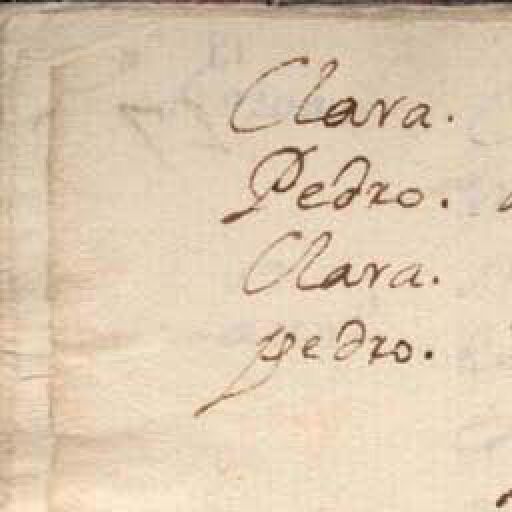 Clara.
Pedro.
Clara.
pedro.